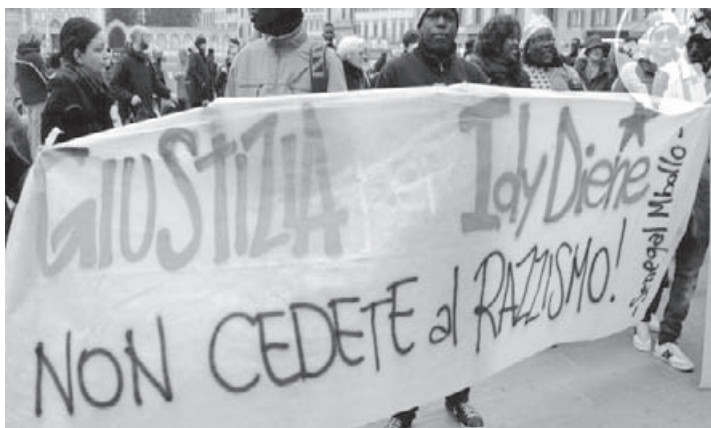 GIUSTIZIA per Idy Diene
NON CEDETE al RAZZISMO!
Senegal Mballo -